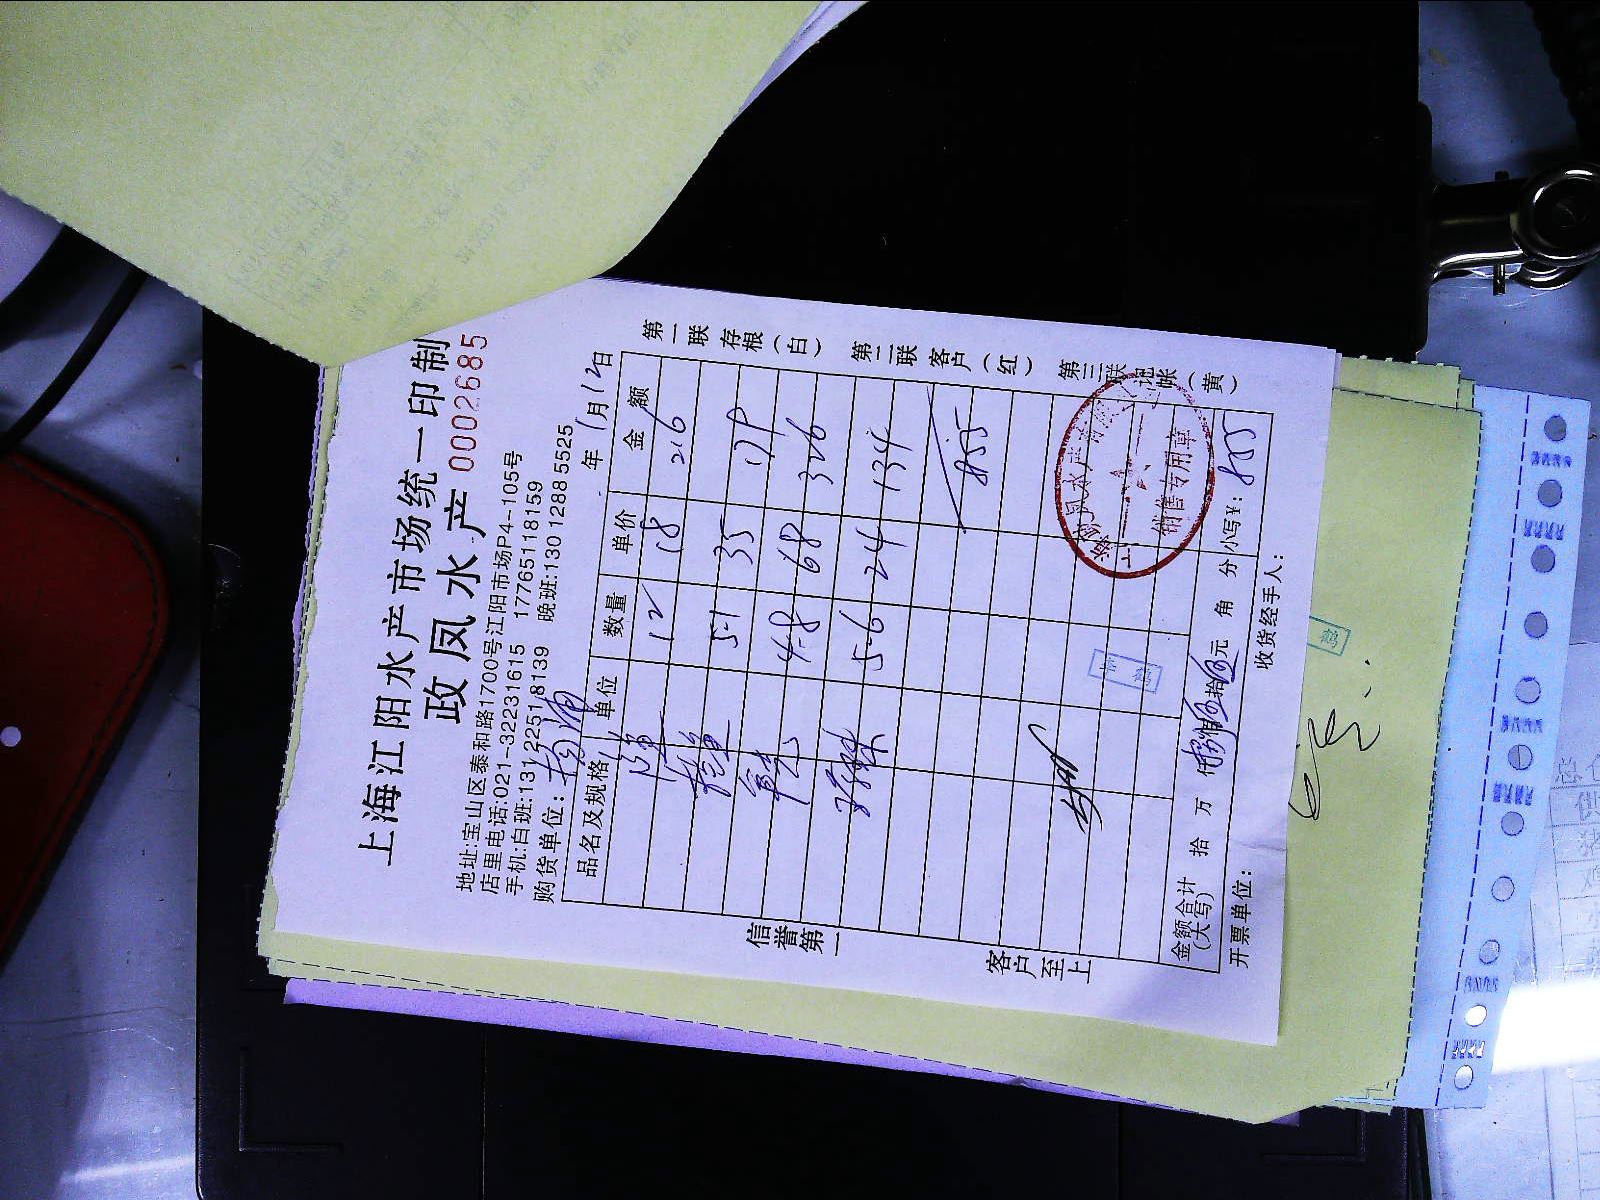 上海江阳水产市场统一印制
政凤水产 0002685
地址:宝山区泰和路1700号江阳市场P4-105号
店里电话:021-32231615 17765118159
手机:白班:131 2251 8139 晚班:130 1288 5525
购货单位: 年1月12日
品名及规格 单位 数量 单价 金额
12 18 216
5-1 35 179
4-8 68 326
5-6 24 134
855
金额合计(大写) 拾 万 仟 佰 拾 元 角 分 小写¥: 855
开票单位: 收货经手人:
信誉第一
客户至上
第一联存根(白)
第二联客户(红)
第三联记帐(黄)
销售专用章